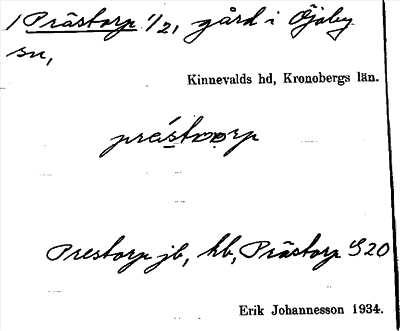 1 Prästorp 1/2, gård i Öjaby
sn,
Kinnevalds hd, Kronobergs län.
prestorp
Prestorp jb, hb, Prästorp S20
Erik Johannesson 1934.